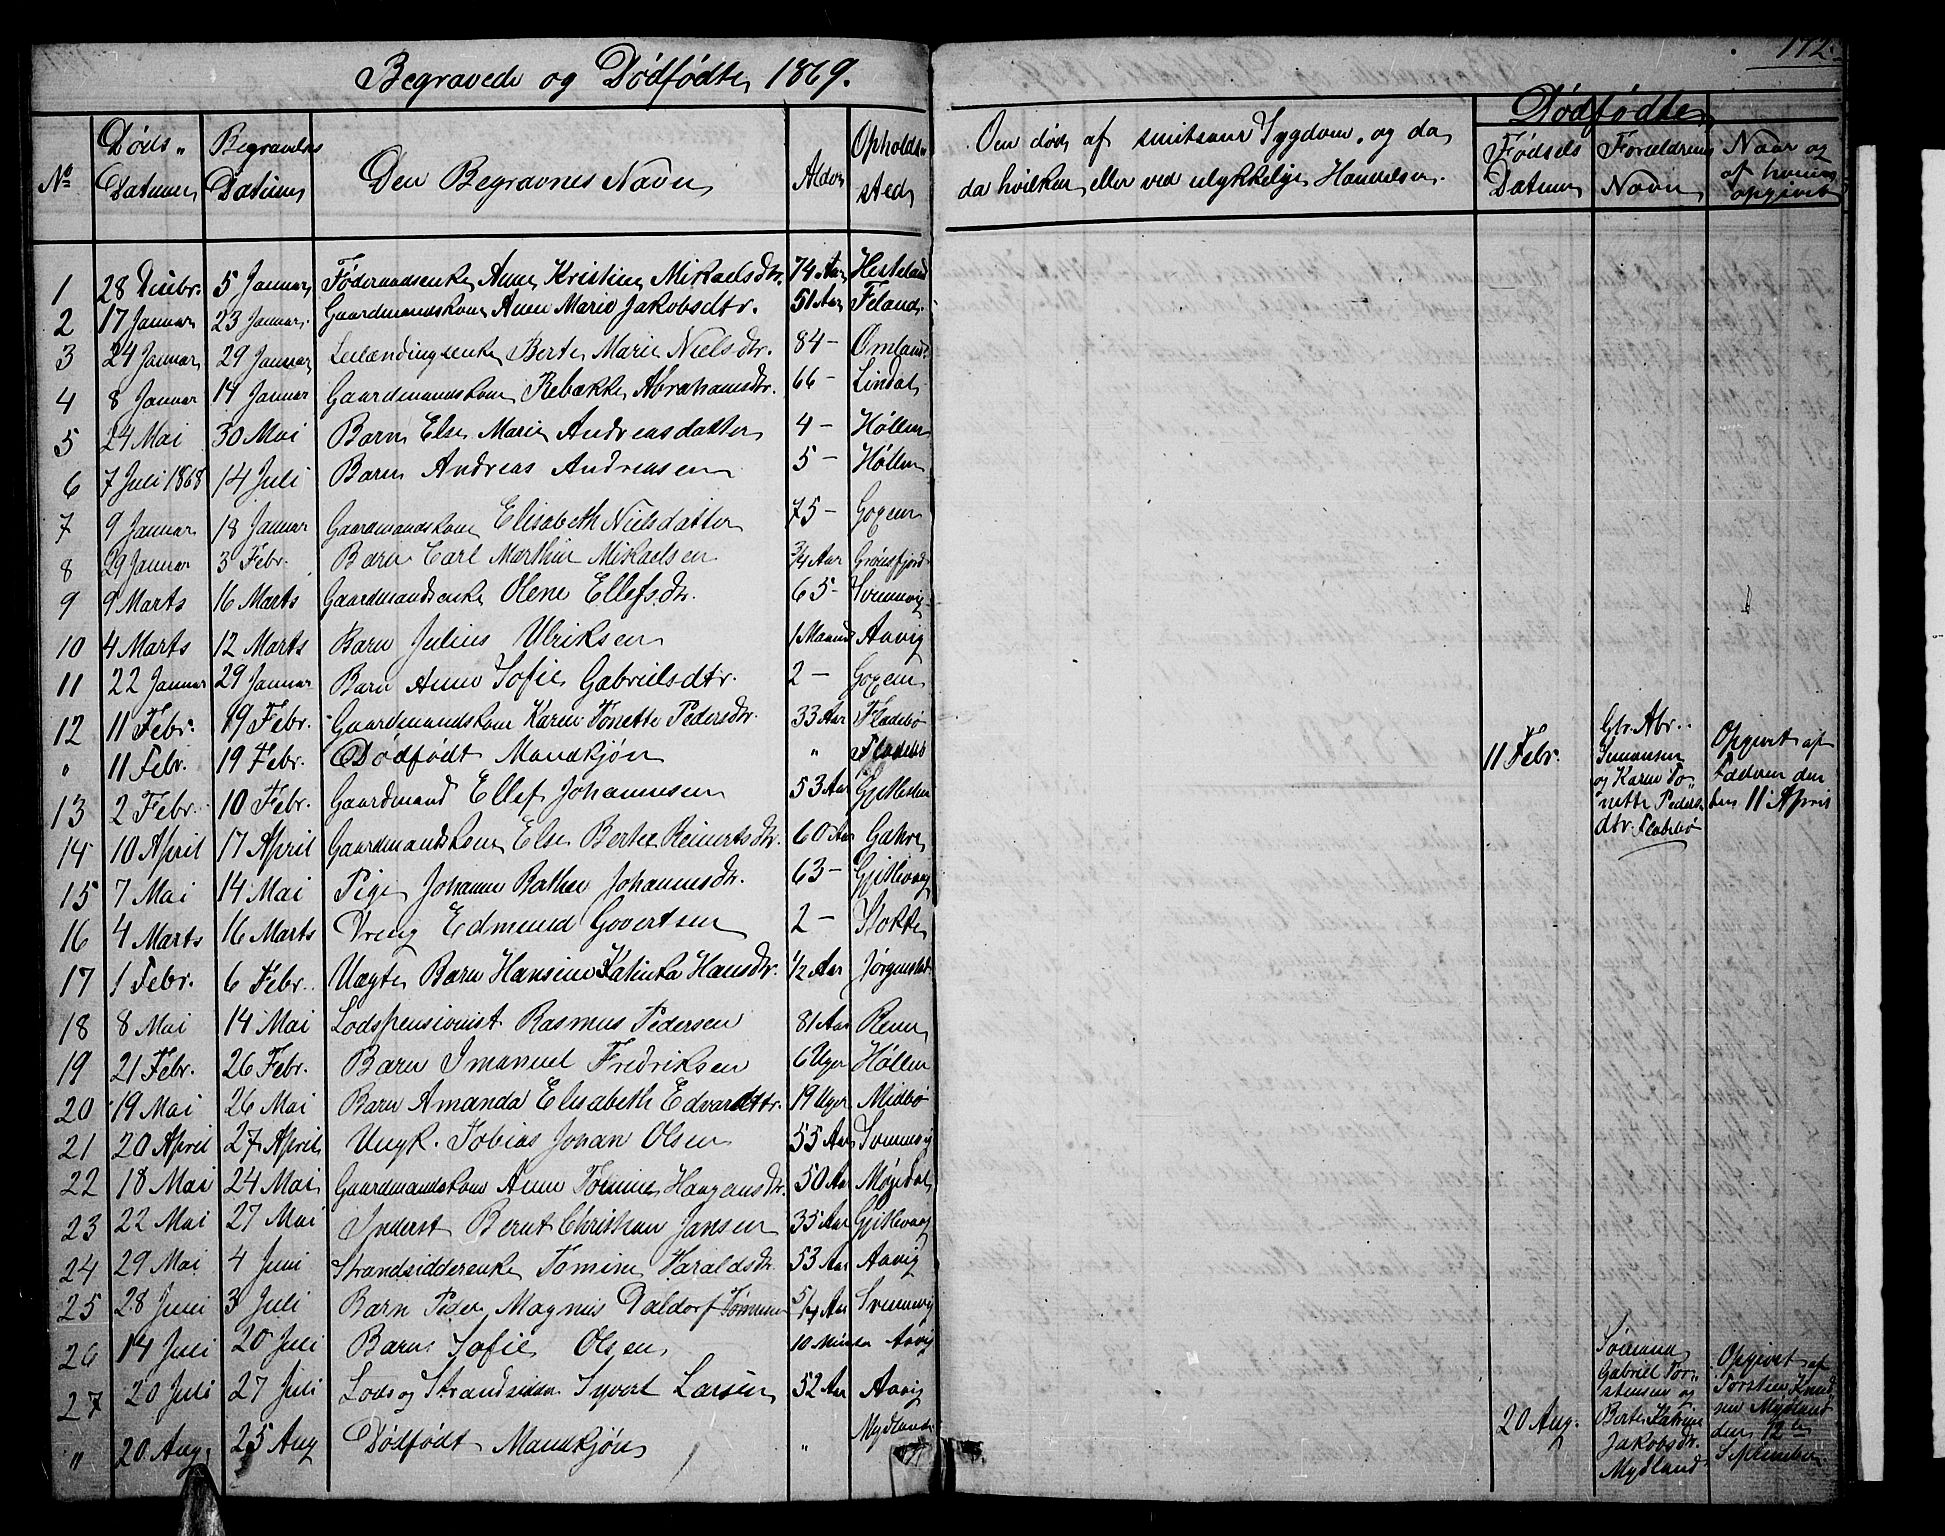 172.
Begravede og Dødfødte 1869.
Dødfødte
No Døds Datum Begravelses Datum Den Begravnes Navn Alder Opholdssted Om død af smitsom Sygdom, og da da hvilken, eller ved ulykkelige Hændelser. Fødsels Datum Forældrenes Navn Naar og af hvem opgivet
1 28 Decbr. 5 Januar Føderaadsenke Anne Kristine Mikaelsdtr. 74 Aar Hesteland
2 17 Januar 23 Januar Gaardmandskone Anne Marie Jakobsdtr. 51 Aar Feland
3 24 Januar 29 Januar Leilændingsenke Berte Marie Nielsdtr. 84 - Omland
4 8 Januar 14 Januar Gaardmandskone Rebække Abrahamsdtr. 66 - Lindal
5 24 Mai 30 Mai Barn Else Marie Andreasdatter 4 - Høllen
6 7 Juli 1868 14 Juli Barn Andreas Andreasen 5 - Høllen
7 9 Januar 18 Januar Gaardmandskone Elisabeth Nielsdatter 75 -
8 29 Januar 3 Febr. Barn Carl Marthin Mikaelsen 3/4 Aar Grønsfjord
9 9 Marts 16 Marts Gaardmandsenke Olene Ellefsdtr. 65 - Svennevig
10 4 Marts 12 Marts Barn Julius Ulriksen 1 Maaned Aavig
11 22 Januar 29 Januar Barn Anne Sofie Gabrielsdtr. 2 -
12 11 Febr. 19 Febr. Gaardmandskone Karen Tonette Pedersdtr. 33 Aar Fladebø
" 11 Febr. 19 Febr. Dødfødt Mandkjøn " Fladebø 11 Febr. Gbr. Abr. Simonsen og Karen Tonette Pedersdtr. Fladebø Opgivet af Faderen den 11 April
13 2 Febr. 10 Febr. Gaardmand Ellef Johannesen 53 Aar
14 10 April 17 April Gaardmandskone Else Berthe Reinertsdtr. 60 Aar
15 7 Mai 14 Mai Pige Johanne Johannesdtr. 63 - Gjitlevaag
16 4 Marts 16 Marts Dreng Edmund Govertsen 2 - Stokke
17 1 Febr. 6 Febr. Uægte Barn Hansine Katinka Hansdtr. 1/2 Aar Jørgenstad
18 8 Mai 14 Mai Lodspensionist Rasmus Pedersen 81 Aar
19 21 Febr. 26 Febr. Barn Imanuel Fredriksen 6 Uger Høllen
20 19 Mai 26 Mai Barn Amanda Elisabeth Edvardtr. 19 Uger Midbø
21 20 April 27 April Ungk. Tobias Johan Olsen 55 Aar Svennevig
22 18 Mai 24 Mai Gaardmandskone Anne Tomine Haagensdtr. 50 Aar
23 22 Mai 27 Mai Inderst Bernt Christian Jansen 35 Aar Gjitlevaag
24 29 Mai 4 Juni Strandsidderenke Tomine Haraldsdtr. 53 Aar Aavig
25 28 Juni 3 Juli Barn Peder Magnus Daldorf 5/4 Aar Svennevig
26 14 Juli 20 Juli Barn Sofie Olsen 10 Aavig
27 20 Juli 27 Juli Lods og Strandsidder Syvert Larsen 52 Aar Aavig
" 20 Aug. 25 Aug Dødfødt Mandkjøn " Mydland 20 Aug. Sømand Gabriel Torstensen og Berte Katrine Jakobsdtr. Mydland Opgivet af Torsten Knudsen Mydland den 12te September.